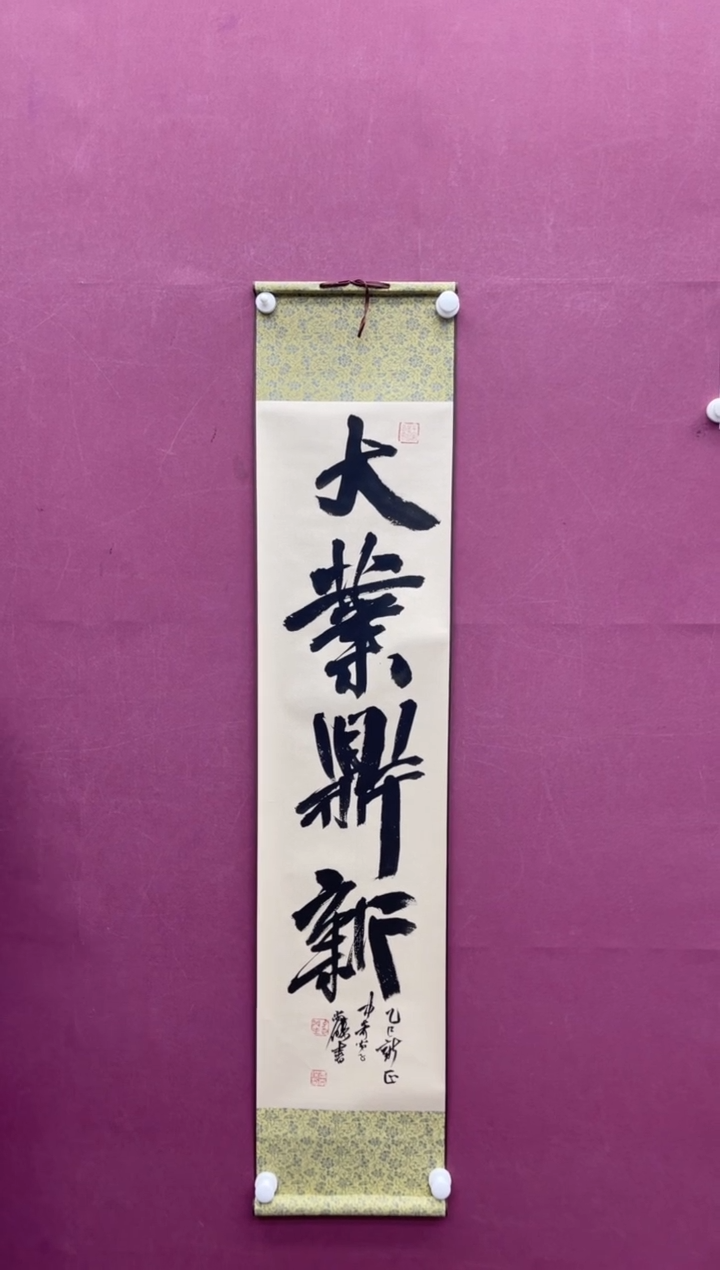 大業鼎新
乙巳新正
書